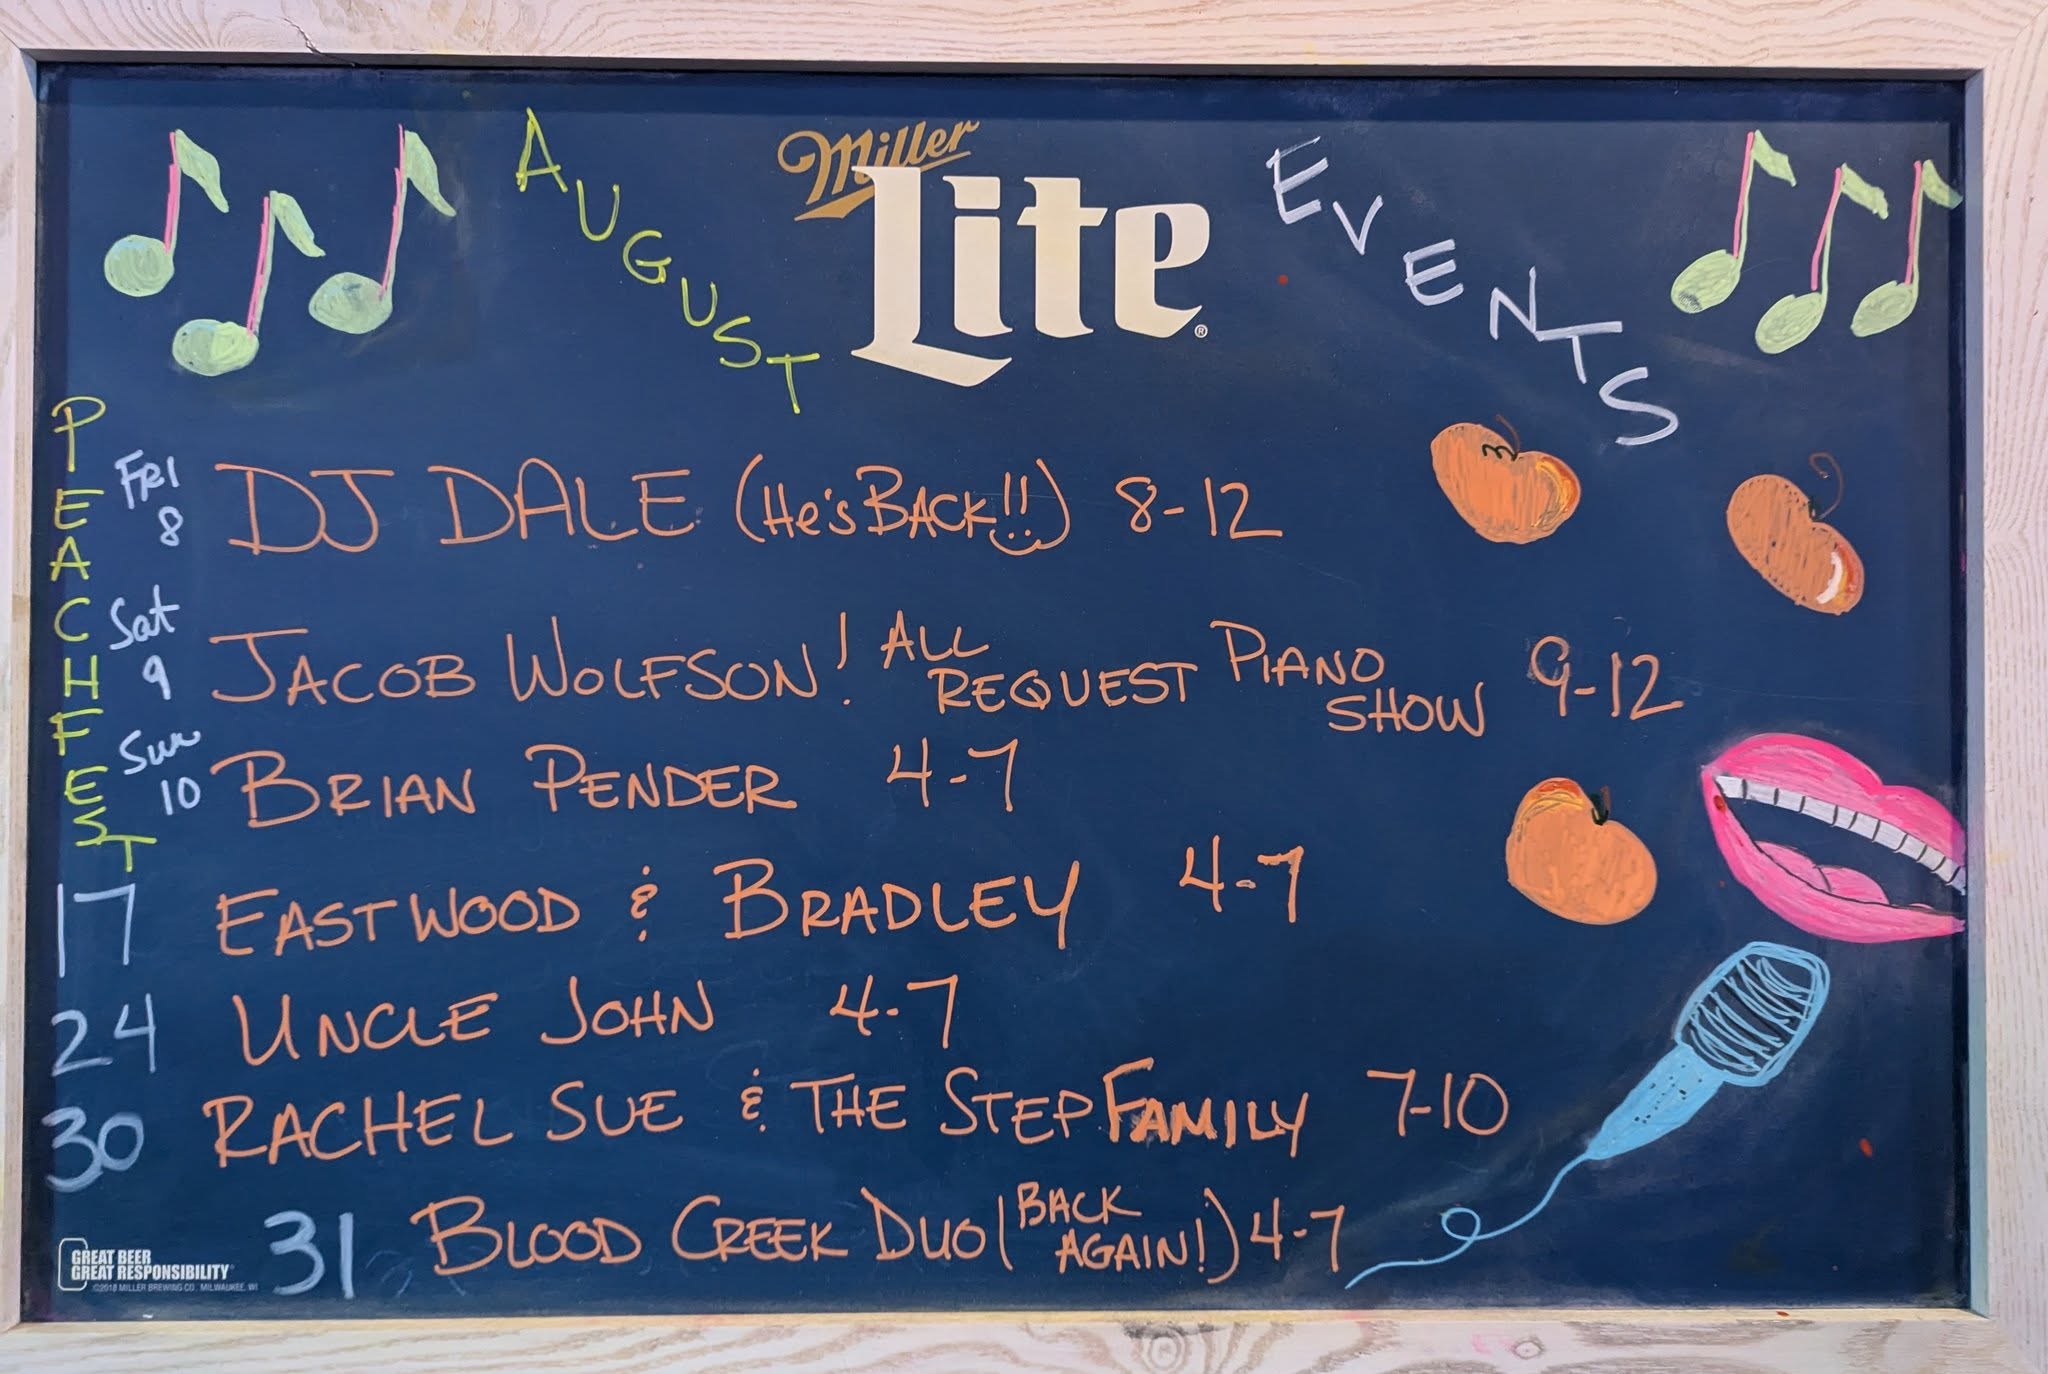 AUGUST
Miller
Lite
EVENTS
PEACHFEST
Fri 8 DJ DALE (He's BACK!!) 8-12
Sat 9 JACOB WOLFSON! ALL REQUEST PIANO SHOW 9-12
Sun 10 BRIAN PENDER 4-7
17 EASTWOOD & BRADLEY 4-7
24 UNCLE JOHN 4-7
30 RACHEL SUE & THE STEPFAMILY 7-10
31 BLOOD CREEK DUO (BACK AGAIN!) 4-7
GREAT BEER
GREAT RESPONSIBILITY®
©2018 MILLER BREWING CO., MILWAUKEE, WI